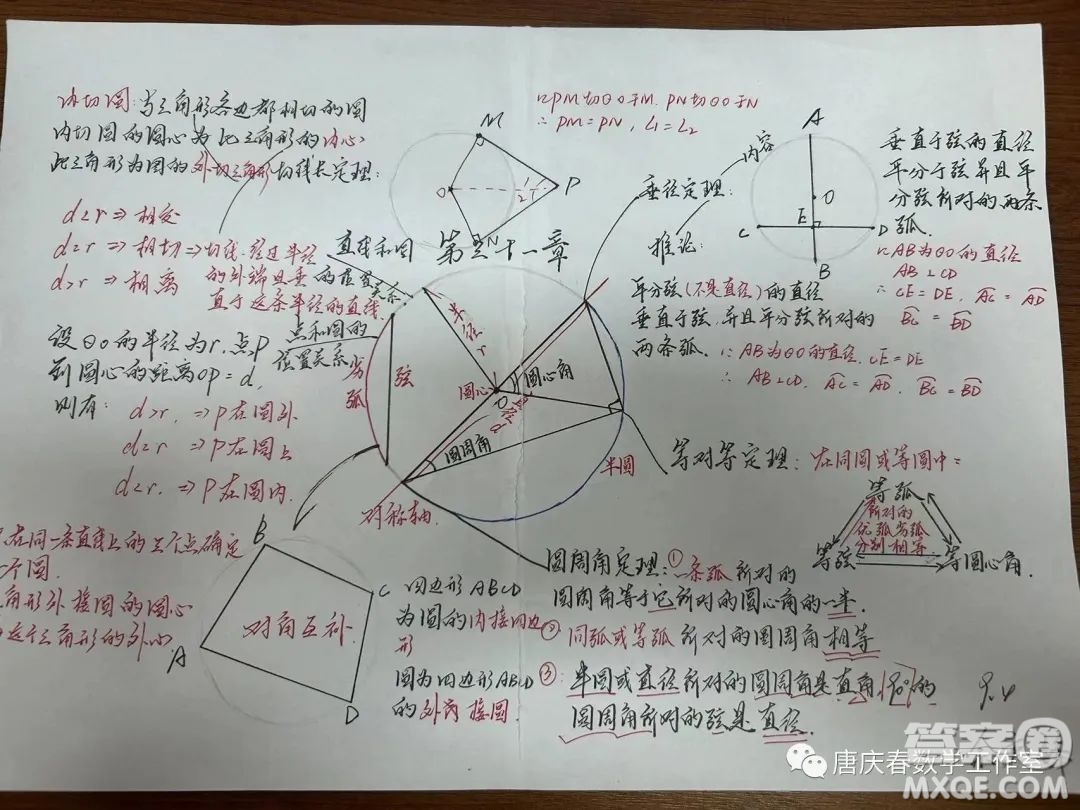 内切圆:与三角形各边都相切的圆
内切圆的圆心为此三角形的内心
此三角形为圆的外切三角形
切线长定理:
∵PM切⊙O于M. PN切⊙O于N
∴ PM=PN,
M
O
1
2
P
N
第三十一章
直线和圆
的位置关系
d<r ⇒ 相交
d=r ⇒ 相切 ⇒ 切线:经过半径
的外端且垂
直于这条半径的直线.
d>r ⇒ 相离
点和圆的
位置关系
设⊙O的半径为r,点P
到圆心的距离OP=d,
则有:
d>r, ⇒ P在圆外
d=r, ⇒ P在圆上
d<r, ⇒ P在圆内.
在同一条直线上的三个点确定
个圆.
角形外接圆的圆心
三角形的外心
劣弧
弦
半径r
圆心
O
圆心角
直径
圆周角
半圆
对称轴
垂径定理:
内容
推论:
A
O
E
C
D
B
垂直于弦的直径
平分于弦并且平
分弦所对的两条
弧.
∵AB为⊙O的直径
AB⊥CD
∴CE=DE, AC=AD
BC=BD
平分弦(不是直径)的直径
垂直于弦,并且平分弦所对的
两条弧.
∵AB为⊙O的直径,CE=DE
∴ AB⊥CD, AC=AD, BC=BD
等对等定理:在同圆或等圆中=
等弧
所对的
优弧劣弧
分别相等
等弦
等圆心角.
B
C
A
D
对角互补.
四边形ABCD
为圆的内接四边
形
圆为四边形ABCD
的外接圆.
圆周角定理:①一条弧所对的
圆周角等于它所对的圆心角的一半.
②同弧或等弧所对的圆周角相等
③:半圆或直径所对的圆周角是直角,90°的
圆周角所对的弦是直径.
唐庆春数学工作室
答案圈
MXQE.COM